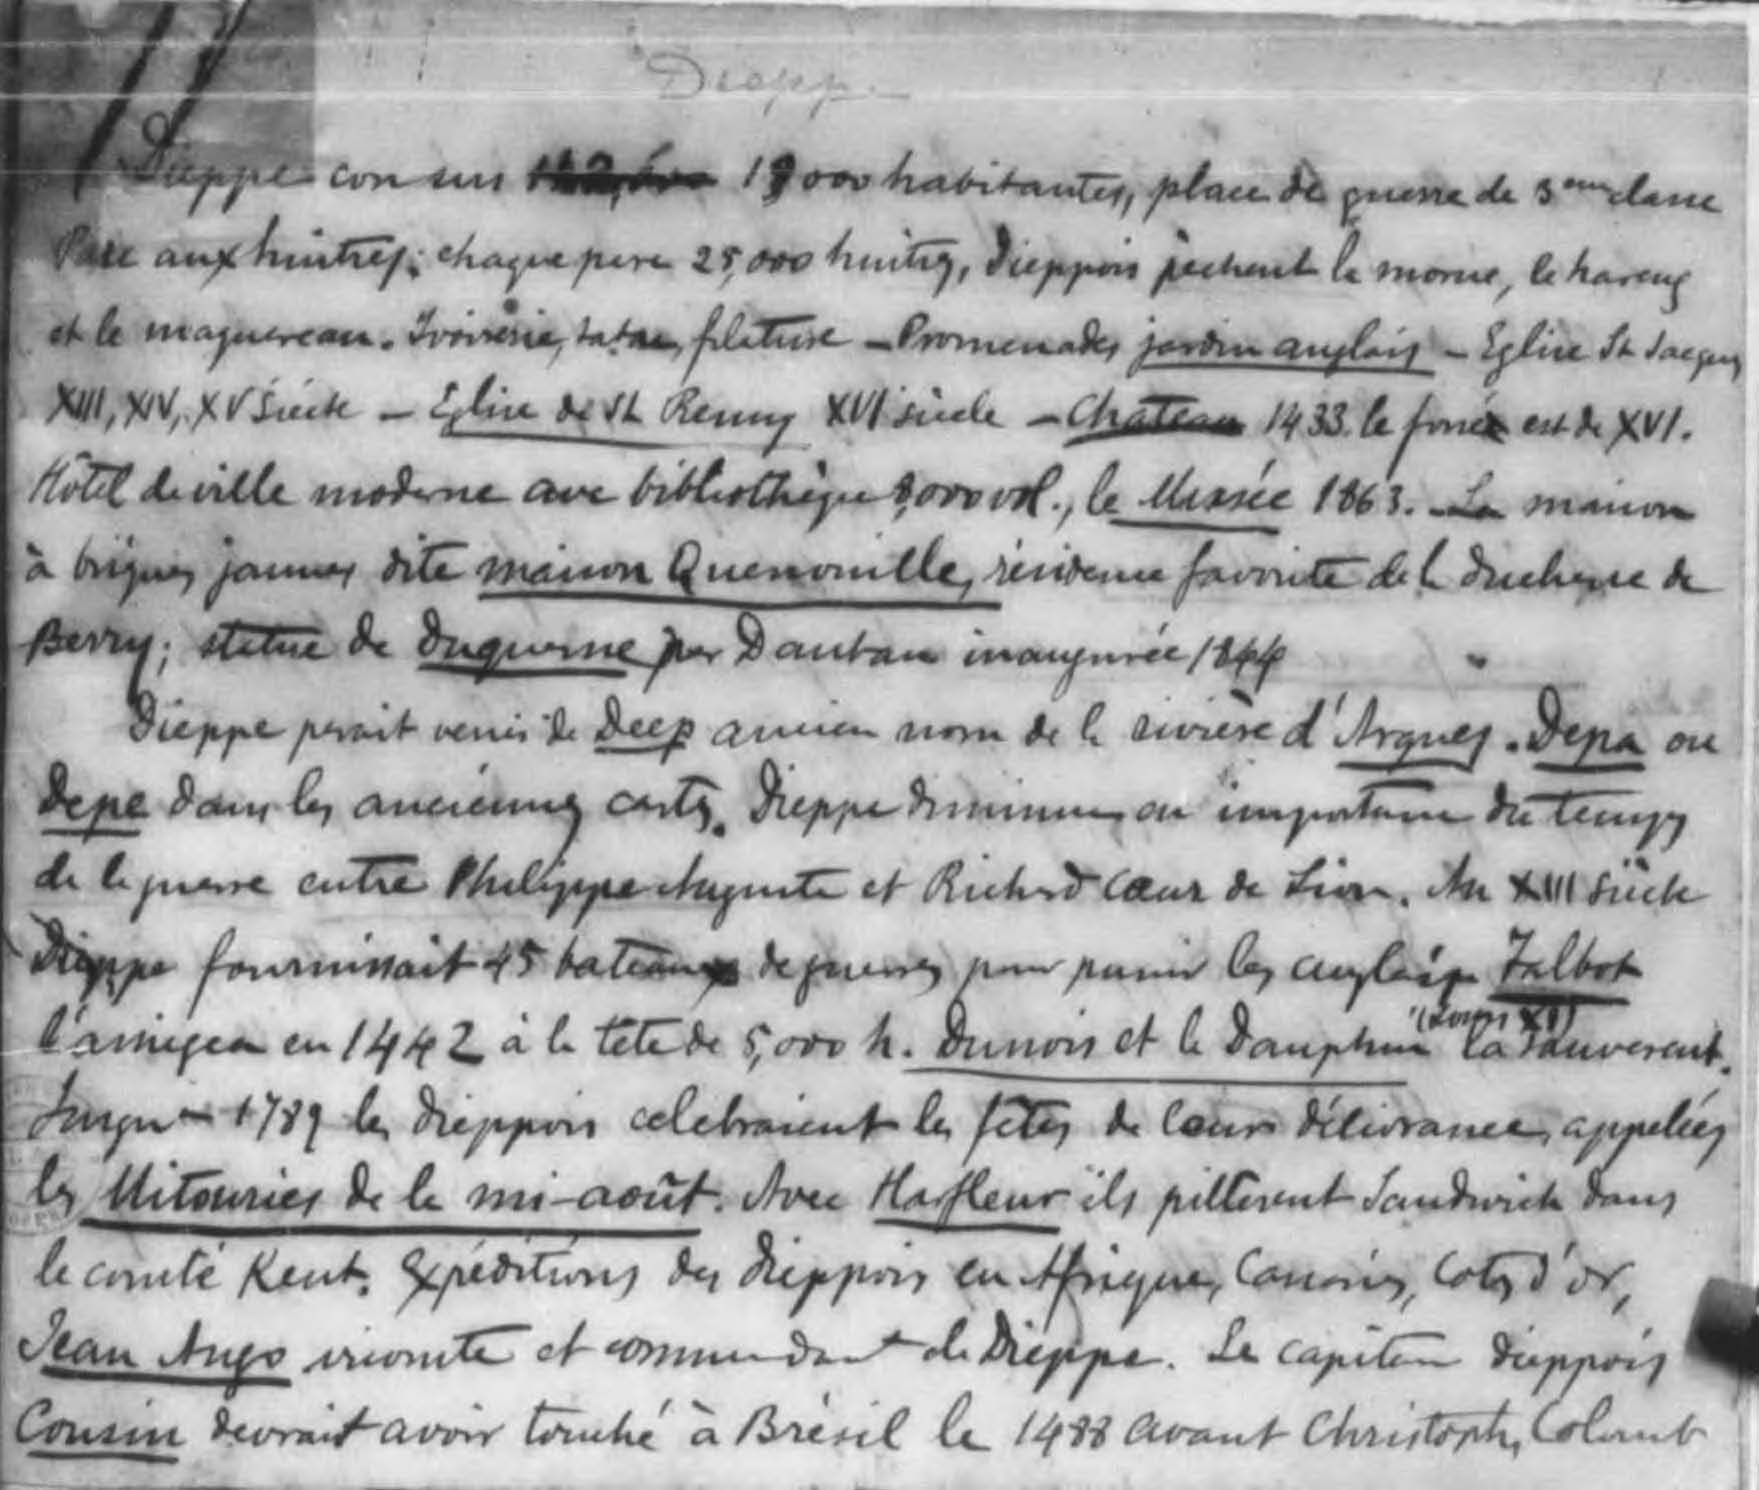 Dieppe
Dieppe 19000 habitantes, place de guerre de 3eme classe
Parc aux huitres; chaque parc 25,000 huitres, Dieppois pechent la morue, le hareng
et le maquereau. Ivoirerie, tabac, filature – Promenades jardin anglais – Eglise St Jacques
XIII, XIV, XV siècle – Eglise de St Remy XVI siècle – Chateau 1433. le est de XVI.
Hôtel de ville moderne ave bibliothèque 8,000 vol., le Musée 1863. – La maison
à briques jaunes dite maison Quenouille, résidence favorite de la duchesse de
Berry; statue de Duquesne par Dantan inaugurée 1844
Dieppe parait venir de Deep ancien nom de la rivière d'Arques. Depa ou
Depe dans les anciennes cartes. Dieppe diminue en importance du temps
de la guerre entre Philippe Auguste et Richard Cœur de Lion. Au XIII siècle
Dieppe fournissait 45 bateaux de guerres pour punir les anglais. Talbot
l'assiegea en 1442 à la tête de 5,000 h. Dunois et le Dauphin (Louis XI) la sauverent.
Jusqu'à 1789 les dieppois celebraient les fêtes de leur délivrance, appelées
les Mitouries de la mi-août. Avec Harfleur ils pillerent Sandwich dans
le comté Kent. Expéditions des dieppois en Afrique, Canaries, Cotes d'or,
Jean Ango vicomte et commandant de Dieppe. Le capitain dieppois
Cousin devrait avoir touché à Brésil le 1488 avant Christophe Colomb